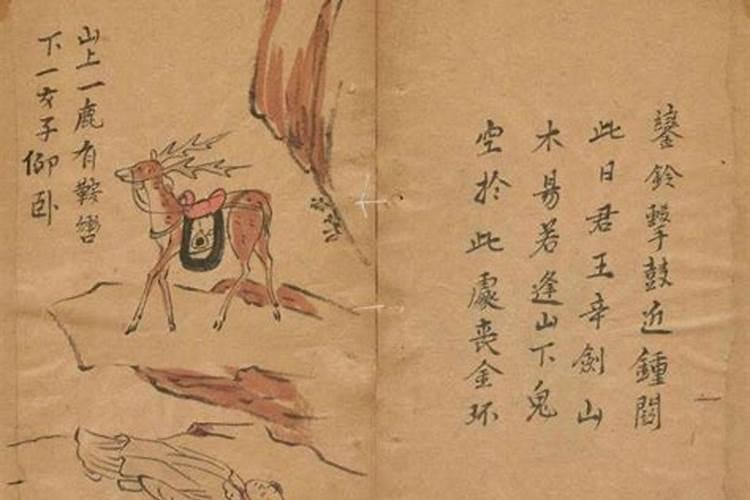 鑾鈴擊鼓近鍾閣
此日君王幸劍山
木易若逢山下鬼
空於此處丧金环
山上一鹿有鞍轡
下一女子仰卧